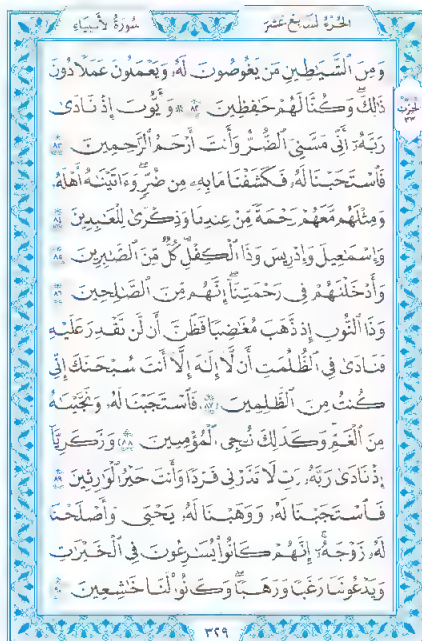 الجزء السابع عشر
سورة الأنبياء
وَمِنَ ٱلشَّيَٰطِينِ مَن يَغُوصُونَ لَهُۥ وَيَعْمَلُونَ عَمَلًا دُونَ
ذَٰلِكَ ۖ وَكُنَّا لَهُمْ حَٰفِظِينَ ٨٢ ۞ وَأَيُّوبَ إِذْ نَادَىٰ
رَبَّهُۥٓ أَنِّى مَسَّنِىَ ٱلضُّرُّ وَأَنتَ أَرْحَمُ ٱلرَّٰحِمِينَ ٨٣
فَٱسْتَجَبْنَا لَهُۥ فَكَشَفْنَا مَا بِهِۦ مِن ضُرٍّ ۖ وَءَاتَيْنَٰهُ أَهْلَهُۥ
وَمِثْلَهُم مَّعَهُمْ رَحْمَةً مِّنْ عِندِنَا وَذِكْرَىٰ لِلْعَٰبِدِينَ ٨٤
وَإِسْمَٰعِيلَ وَإِدْرِيسَ وَذَا ٱلْكِفْلِ ۖ كُلٌّ مِّنَ ٱلصَّٰبِرِينَ ٨٥
وَأَدْخَلْنَٰهُمْ فِى رَحْمَتِنَآ ۖ إِنَّهُم مِّنَ ٱلصَّٰلِحِينَ ٨٦
وَذَا ٱلنُّونِ إِذ ذَّهَبَ مُغَٰضِبًا فَظَنَّ أَن لَّن نَّقْدِرَ عَلَيْهِ
فَنَادَىٰ فِى ٱلظُّلُمَٰتِ أَن لَّآ إِلَٰهَ إِلَّآ أَنتَ سُبْحَٰنَكَ إِنِّى
كُنتُ مِنَ ٱلظَّٰلِمِينَ ٨٧ فَٱسْتَجَبْنَا لَهُۥ وَنَجَّيْنَٰهُ
مِنَ ٱلْغَمِّ ۚ وَكَذَٰلِكَ نُۨجِى ٱلْمُؤْمِنِينَ ٨٨ وَزَكَرِيَّآ
إِذْ نَادَىٰ رَبَّهُۥ رَبِّ لَا تَذَرْنِى فَرْدًا وَأَنتَ خَيْرُ ٱلْوَٰرِثِينَ ٨٩
فَٱسْتَجَبْنَا لَهُۥ وَوَهَبْنَا لَهُۥ يَحْيَىٰ وَأَصْلَحْنَا
لَهُۥ زَوْجَهُۥٓ ۚ إِنَّهُمْ كَانُوا۟ يُسَٰرِعُونَ فِى ٱلْخَيْرَٰتِ
وَيَدْعُونَنَا رَغَبًا وَرَهَبًا ۖ وَكَانُوا۟ لَنَا خَٰشِعِينَ ٩٠
٣٢٩